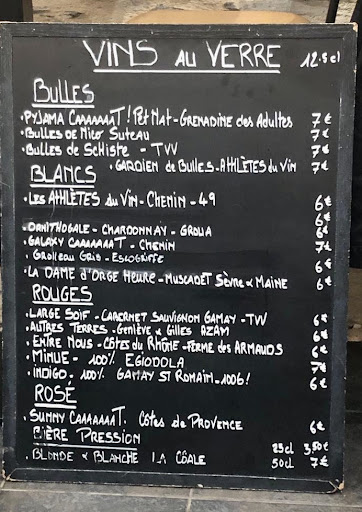 VINS AU VERRE 12.5cl
BULLES
• PYJAMA CAAAAAAT! Pét Nat - Grenadine des Adultes 7€
• BULLES DE Nico Suteau 7€
• BULLES de SCHISTE - TVV 7€
• GARDIEN de BULLES - ATHLÈTES du VIN 7€
BLANCS
• LES ATHLÈTES du VIN - CHENIN - 49 6€
6€
• ORNITHOGALE - CHARDONNAY - GROUA 6€
• GALAXY CAAAAAAAT - CHENIN 7€
• GROLLEAU GRIS - ESCOGRIFFE
6€
• LA DAME d'ORGE HEURE - MUSCADET SÈVRE & MAINE 6€
ROUGES
• LARGE SOIF - CABERNET SAUVIGNON GAMAY - TVV 6€
• AUTRES TERRES - GENLÈVE & Gilles AZAM 6€
• ENTRE NOUS - CÔTES du RHÔME - FERME des ARMAUDS 6€
• MINUE - 100% EGIODOLA 7€
• INDIGO - 100% GAMAY ST ROMAIN - 1006! 6€
ROSÉ
• SUNNY CAAAAAAT. CÔTES DE PROVENCE 6€
BIÈRE PRESSION 25cl 3,50€
• BLONDE & BLANCHE LA CÔALE 50cl 7€